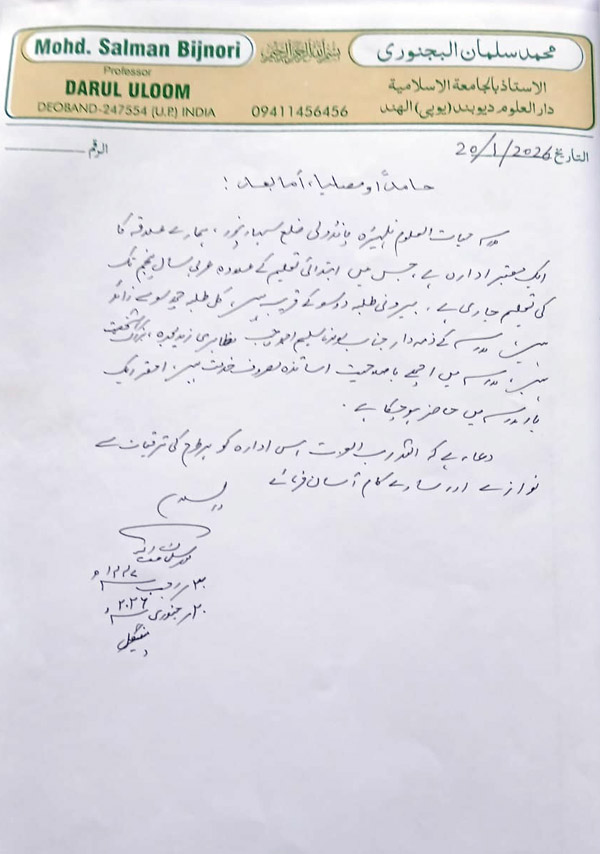 Mohd. Salman Bijnori
Professor
DARUL ULOOM
DEOBAND-247554 (U.P.) INDIA
09411456456
بسم الله الرحمن الرحيم
محمد سلمان البجنوري
الاستاذ بالجامعة الاسلامية
دار العلوم ديوبند (يوپي) الهند
التاريخ 20/1/2026
الرقم
حامدا و مصليا، أما بعد :
مدرسہ حیات العلوم نلہیڑہ پانڈولی ضلع سہارنپور، ہمارے علاقہ کا
ایک معتبر ادارہ ہے، جس میں ابتدائی تعلیم کے علاوہ عربی سال پنجم تک
کی تعلیم جاری ہے، بیرونی طلبہ دو سو کے قریب ہیں، کل طلبہ چھ سو سے زائد
ہیں، مدرسہ کے ذمہ دار جناب مولانا سلیم احمد صاحب مظاہری زید مجدہ، شخصیت
ہیں، مدرسہ میں اچھے باصلاحیت اساتذہ مصروف خدمت ہیں، احقر ایک
بار مدرسہ میں حاضر ہو چکا ہے۔
دعاء ہے کہ اللہ رب العزت اس ادارہ کو ہر طرح کی ترقیات سے
نوازے اور سارے کام آسان فرمائے
والسلام
۳۰ رجب ۱۴۴۷ھ
۲۰ جنوری ۲۰۲۶ء